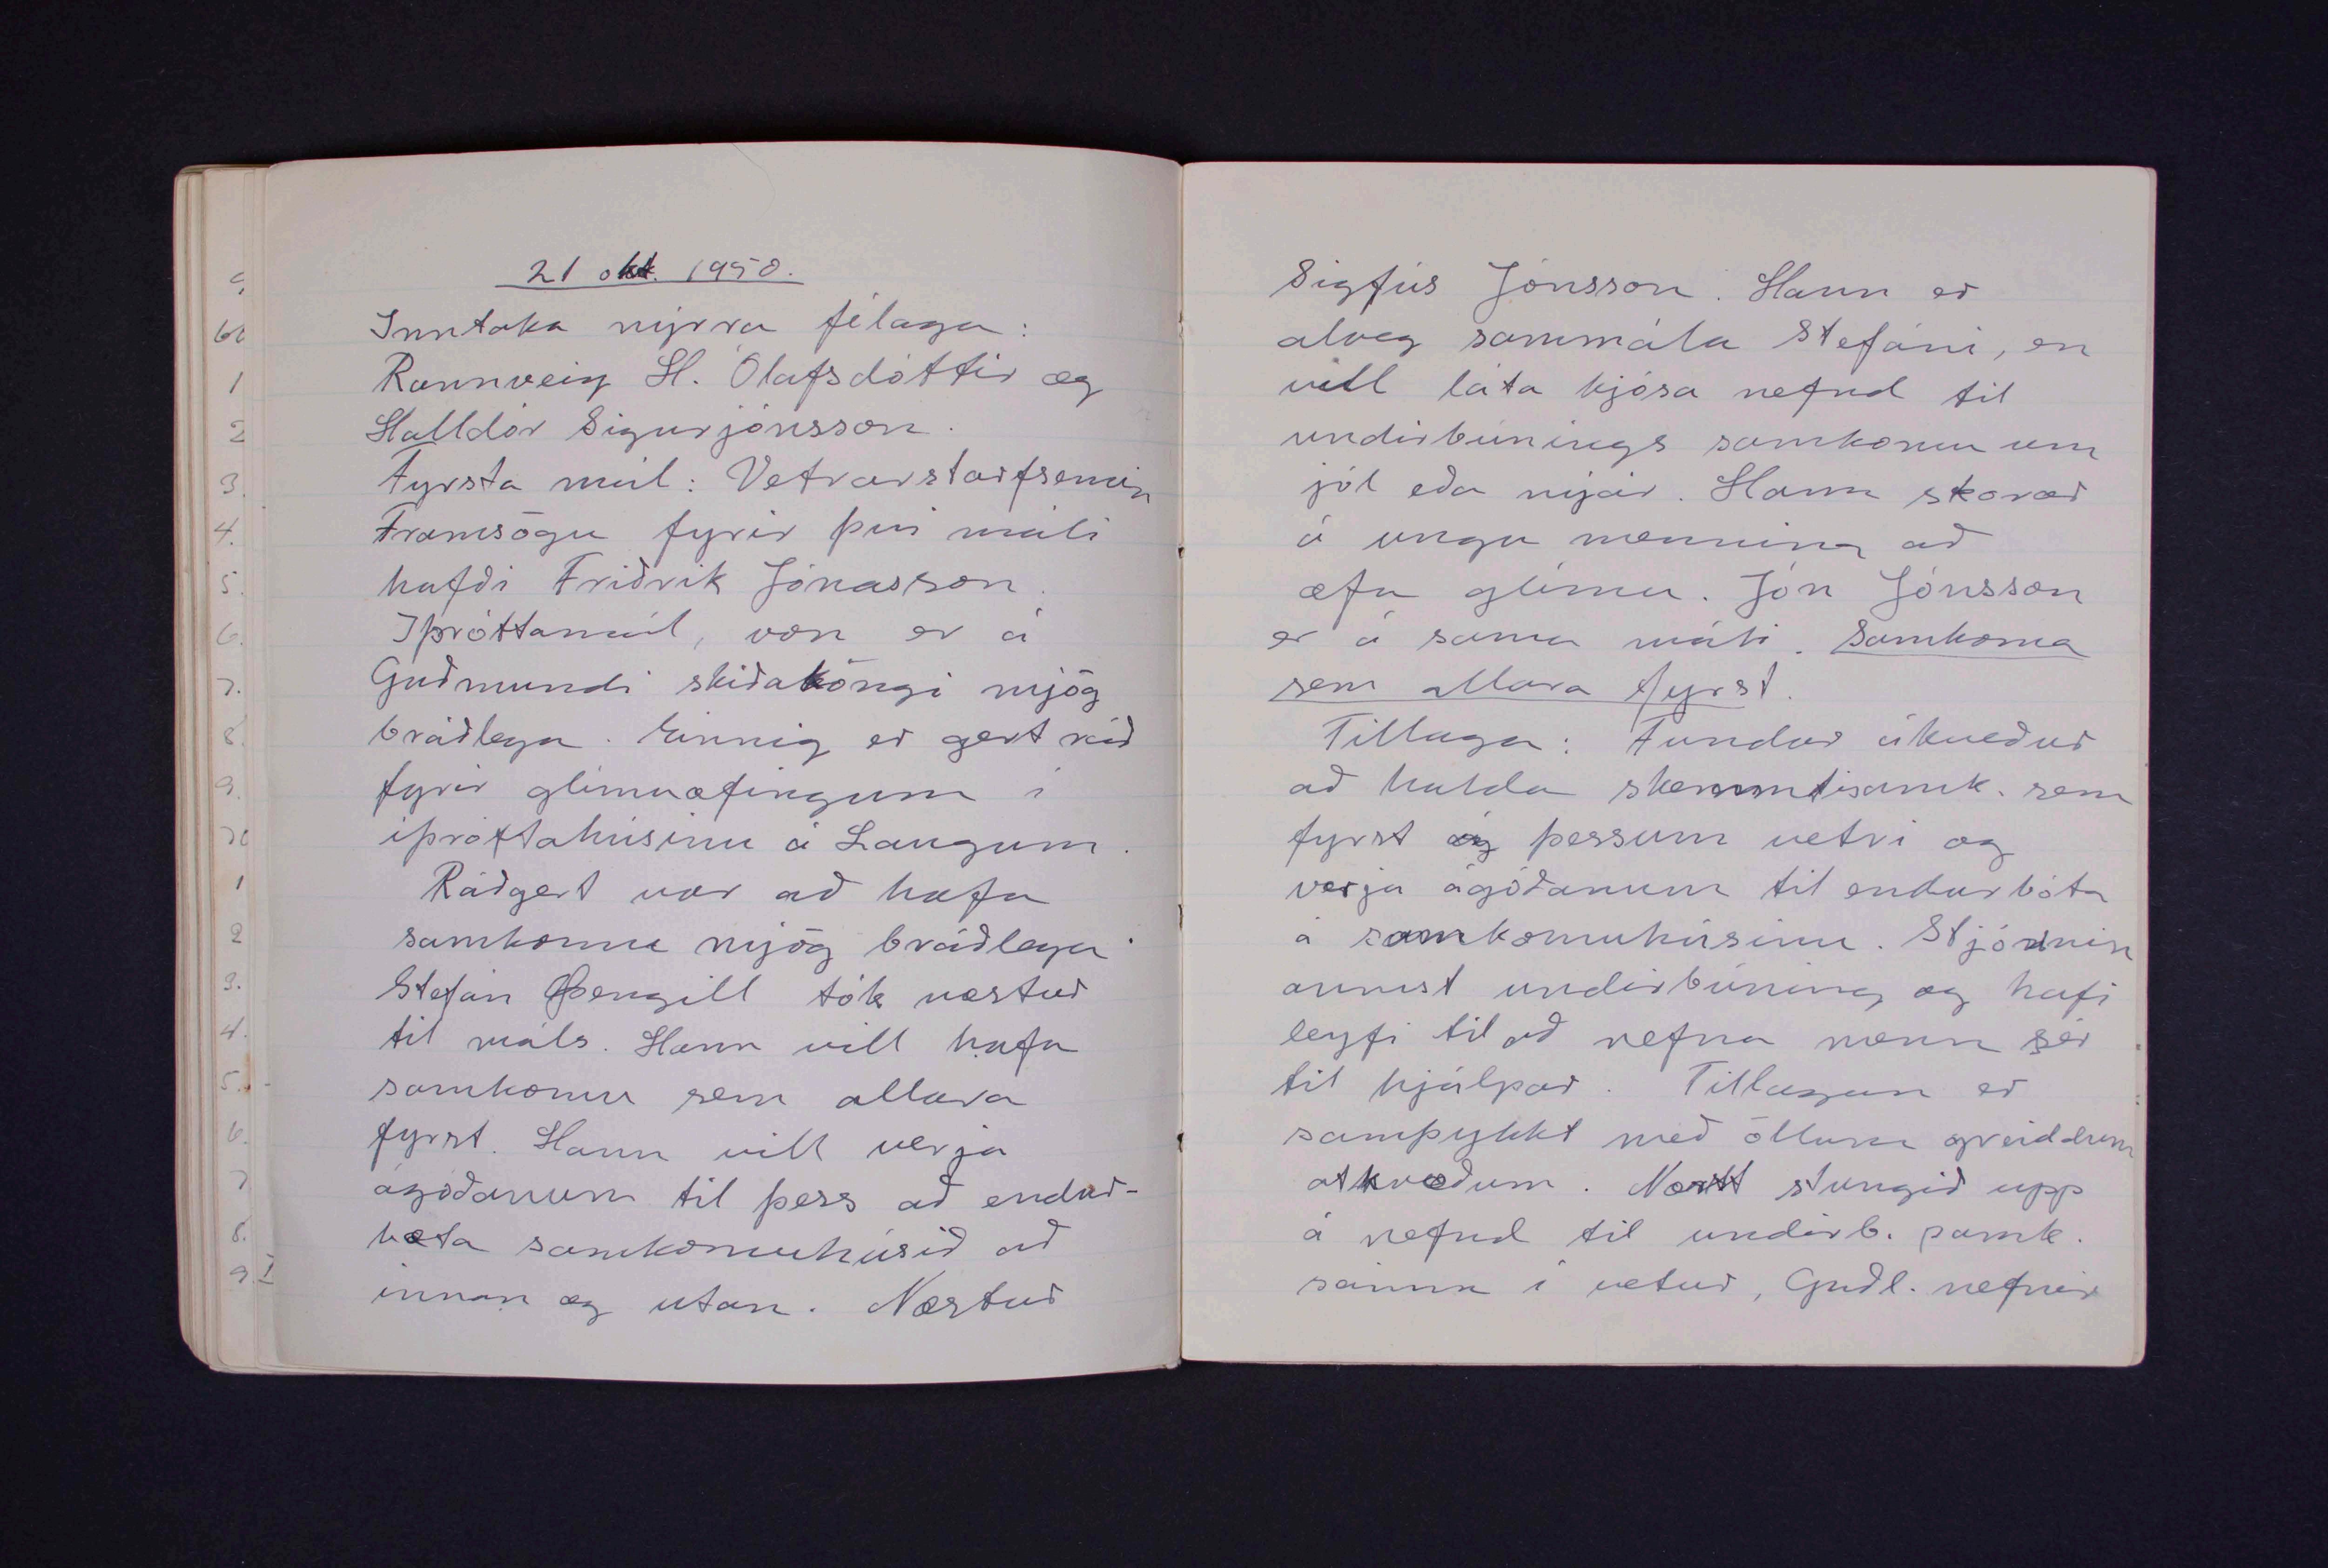 21 okt. 1950.
Inntaka nýrra félaga:
Rannveig H. Ólafsdóttir og
Halldór Sigurjónsson.
Fyrsta mál: Vetrarstarfsemin
Framsögu fyrir því máli
hafði Friðrik Jónasson.
Íþróttamál, von er á
Guðmundi skíðakóngi mjög
bráðlega. Einnig er gert ráð
fyrir glímuæfingum í
íþróttahúsinu á Laugum.
Ráðgert var að hafa
samkomu mjög bráðlega.
Stefán Þengill tók næstur
til máls. Hann vill hafa
samkomu sem allara
fyrst. Hann vill verja
ágóðanum til þess að endur-
bæta samkomuhúsið að
innan og utan. Næstur
Sigfús Jónsson. Hann er
alveg sammála Stefáni, en
vill láta kjósa nefnd til
undirbúnings samkomu um
jól eða nýár. Hann skorar
á unga menning að
æfa glímu. Jón Jónsson
er á sama máli. Samkoma
sem allara fyrst.
Tillaga: Fundur ákveður
að halda skemmtisamk. sem
fyrst á þessum vetri og
verja ágóðanum til endurbóta
á samkomuhúsinu. Stjórnin
annist undirbúning og hafi
leyfi til að nefna menn sér
til hjálpar. Tillagan er
samþykkt með öllum greiddum
atkvæðum. Næst stungið upp
á nefnd til undirb. samk.
sainna í vetur, Guðl. nefnir
9
60
1
2
3.
4.
5.
6.
7.
8.
9.
70
1
2
3.
4.
5.
6.
7
8.
9.